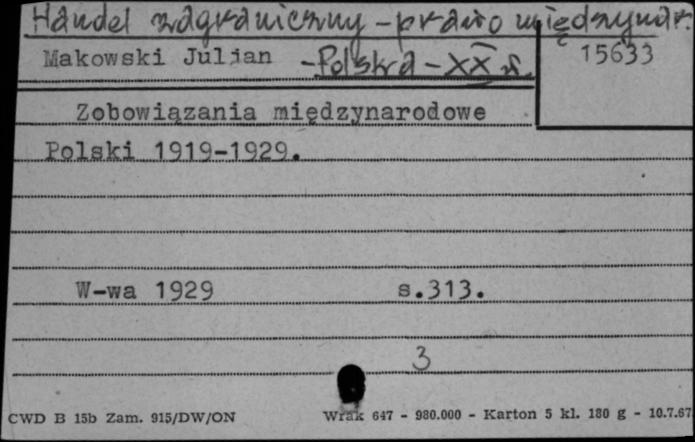 Handel zagraniczny - prawo międzynar.
Makowski Julian - Polska - XX w. 15633
Zobowiązania międzynarodowe
Polski 1919-1929.
W-wa 1929 s.313.
3
CWD B 15b Zam. 915/DW/ON Wrak 647 - 980.000 - Karton 5 kl. 180 g - 10.7.67